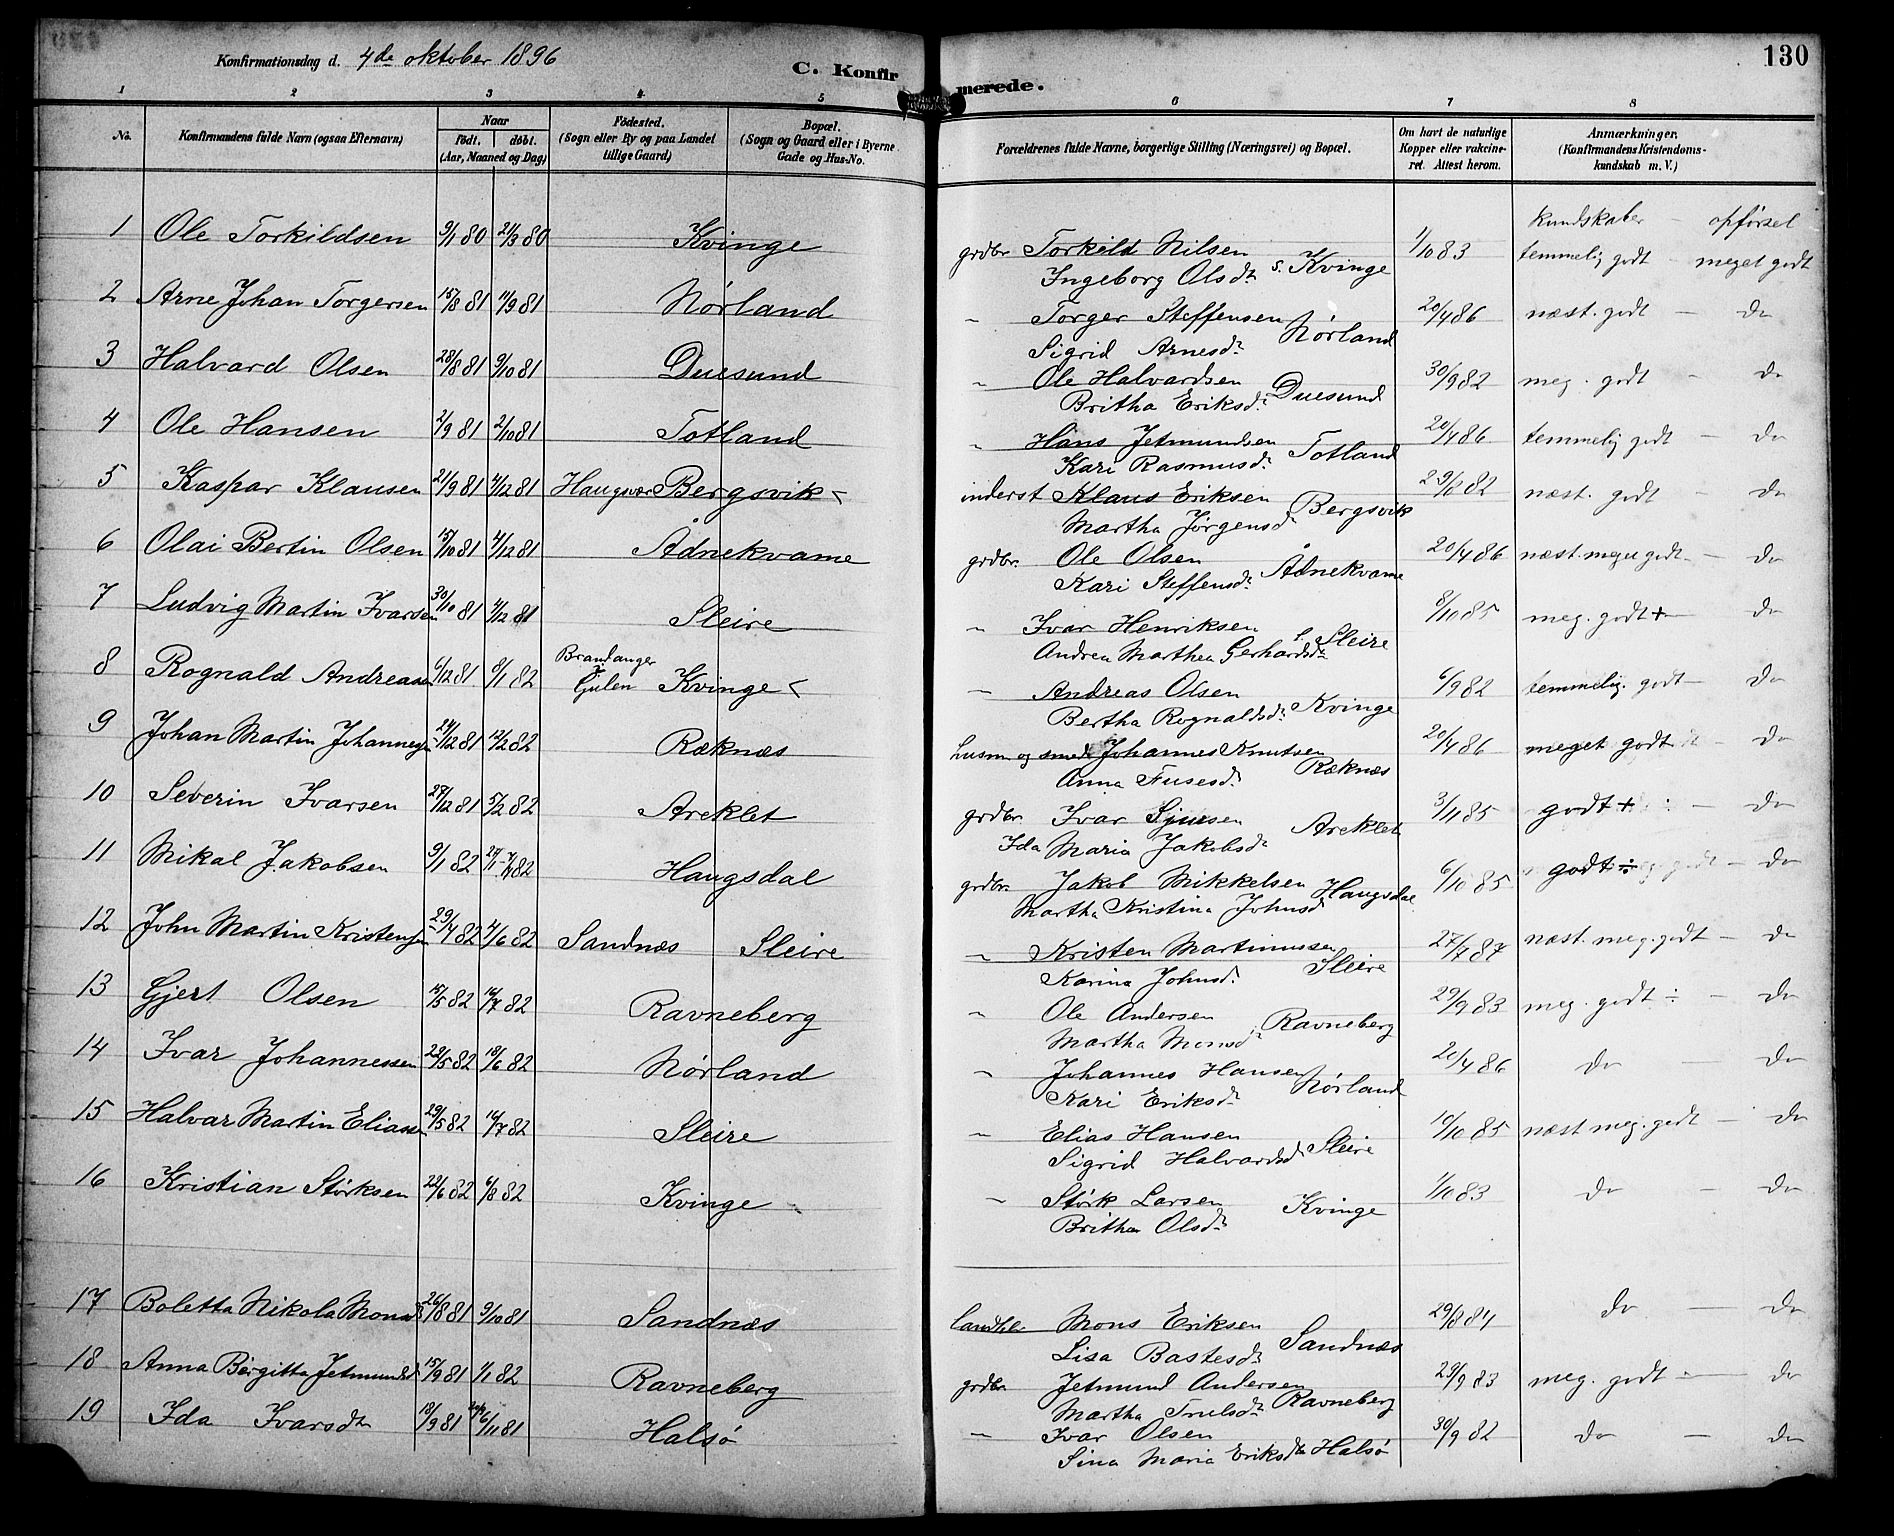 Konfirmationsdag d. 4de oktober 1896
C. Konfirmerede.
130
1 2 3 4 5 6 7 8
No. Konfirmandens fulde Navn (ogsaa Efternavn) Naar født. døbt. (Aar, Maaned og Dag) Fødested. (Sogn eller By og paa Landet tillige Gaard) Bopæl. (Sogn og Gaard eller i Byerne Gade og Hus-No. Forældrenes fulde Navne, borgerlige Stilling (Næringsvei) og Bopæl. Om havt de naturlige Kopper eller vakcineret. Attest herom. Anmærkninger. (Konfirmandens Kristendomskundskab m. V.)
kundskaber - opførsel
1 Ole Torkildsen 9/1 80 21/3 80 Kvinge grdbr. Torkild Nilsen 1/10 83 temmelig godt - meget godt
Ingeborg Olsdr. s. Kvinge
2 Arne Johan Torgersen 15/8 81 4/9 81 Nørland " Torger Steffensen Nørland 20/4 86 næst. godt - do
Sigrid Arnesdr.
3 Halvard Olsen 28/8 81 9/10 81 Duesund " Ole Halvardsen Duesund 30/9 82 meg. godt - do
Britha Eriksdr.
4 Ole Hansen 2/9 81 2/10 81 Totland " Hans Jetmundsen Totland 20/4 86 temmelig godt - do
Kari Rasmusdr.
5 Kaspar Klausen 21/9 81 4/12 81 Haugsvær Bergsvik inderst Klaus Eriksen Bergsvik 82 næst. godt - do
Martha Jørgensdr
6 Olai Bertin Olsen 15/10 81 4/12 81 Ådnekvame grdbr. Ole Olsen Ådnekvame 20/4 86 næst. meget godt - do
Kari Steffensdr.
7 Ludvig Martin Ivarsen 30/10 81 4/12 81 Sleire " Ivar Henriksen Sleire 8/10 85 meg. godt + - do
Andrea Marthea Gerhardsdr
8 Rognald Andreassen 6/12 81 8/1 82 Brandanger Gulen Kvinge " Andreas Olsen Kvinge 6/9 82 temmelig. godt - do
Bertha Rognaldsdr.
9 Johan Martin Johannesen 24/12 81 12/2 82 Ræknæs husm og smed Johannes Knutsen Ræknæs 20/4 86 meget godt - do
Anna Fusesdr.
10 Severin Ivarsen 27/12 81 5/2 82 Areklet grdbr. Ivar Sjursen Areklet 3/11 85 godt + - do
Ida Maria Jakobsdr
11 Mikal Jakobsen 9/1 82 82 Haugsdal grdbr. Jakob Mikkelsen Haugsdal 6/10 85 godt ÷ - do
Martha Kristina Johnsdr
12 John Martin Kristensen 29/4 82 4/6 82 Sandnæs Sleire " Kristen Martinussen Sleire 27/7 87 næst. meg. godt - do
Karina Johnsdr.
13 Gjert Olsen 17/5 82 16/7 82 Ravneberg " Ole Andersen Ravneberg 29/9 83 meg. godt ÷ - do
Martha Monsdr
14 Ivar Johannessen 22/5 82 18/6 82 Nørland " Johannes Hansen Nørland 20/4 86 do - do
Kari Eriksdr.
15 Halvar Martin Eliassen 29/5 82 16/7 82 Sleire " Elias Hansen Sleire 10/10 85 næst meg. godt - do
Sigrid Halvardsdr
16 Kristian Størksen 22/6 82 6/8 82 Kvinge " Størk Larsen Kvinge 1/10 83 do - do
Britha Olsdr
17 Boletta Nikola Monsdr 26/8 81 9/10 81 Sandnæs landhdl. Mons Eriksen Sandnæs 29/8 84 do - do
Lisa Bastesdr.
18 Anna Birgitta Jetmundsd 15/9 81 1/1 82 Ravneberg grdbr. Jetmund Andersen Ravneberg 29/9 83 meg. godt - do
Martha Trulsdr.
19 Ida Ivarsdr 18/9 81 6/11 81 Halsø " Ivar Olsen Halsø 30/9 82 do - do
Sina Maria Eriksdr